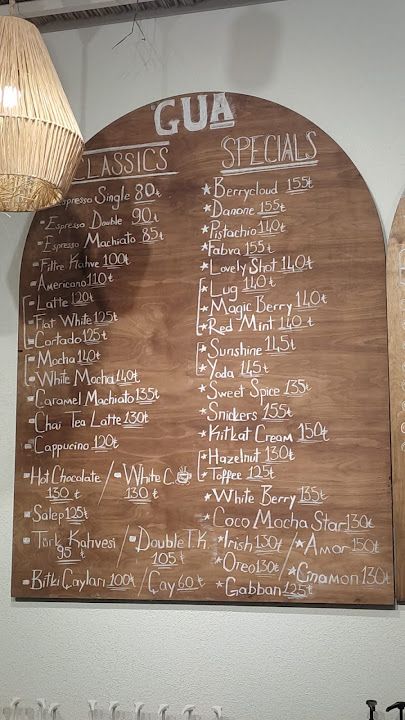 GUA
CLASSICS
Espresso Single 80₺
Espresso Double 90₺
Espresso Machiato 85₺
Filtre Kahve 100₺
Americano 110₺
Latte 120₺
Flat White 125₺
Cortado 125₺
Mocha 140₺
White Mocha 140₺
Caramel Machiato 135₺
Chai Tea Latte 130₺
Cappucino 120₺
Hot Chocolate 130₺ / White C. 130₺
Salep 125₺
Türk Kahvesi 95₺ / Double T.K 105₺
Bitki Çayları 100₺ / Çay 60₺
SPECIALS
Berrycloud 155₺
Danone 155₺
Pistachio 140₺
Fabva 155₺
Lovely Shot 140₺
Lug 140₺
Magic Berry 140₺
Red Mint 140₺
Sunshine 145₺
Yoda 145₺
Sweet Spice 135₺
Snickers 155₺
Kitkat Cream 150₺
Hazelnut 130₺
Toffee 125₺
White Berry 135₺
Coco Mocha Star 130₺
Irish 130₺ / Amor 150₺
Oreo 130₺ / Cinamon 130₺
Gabban 125₺